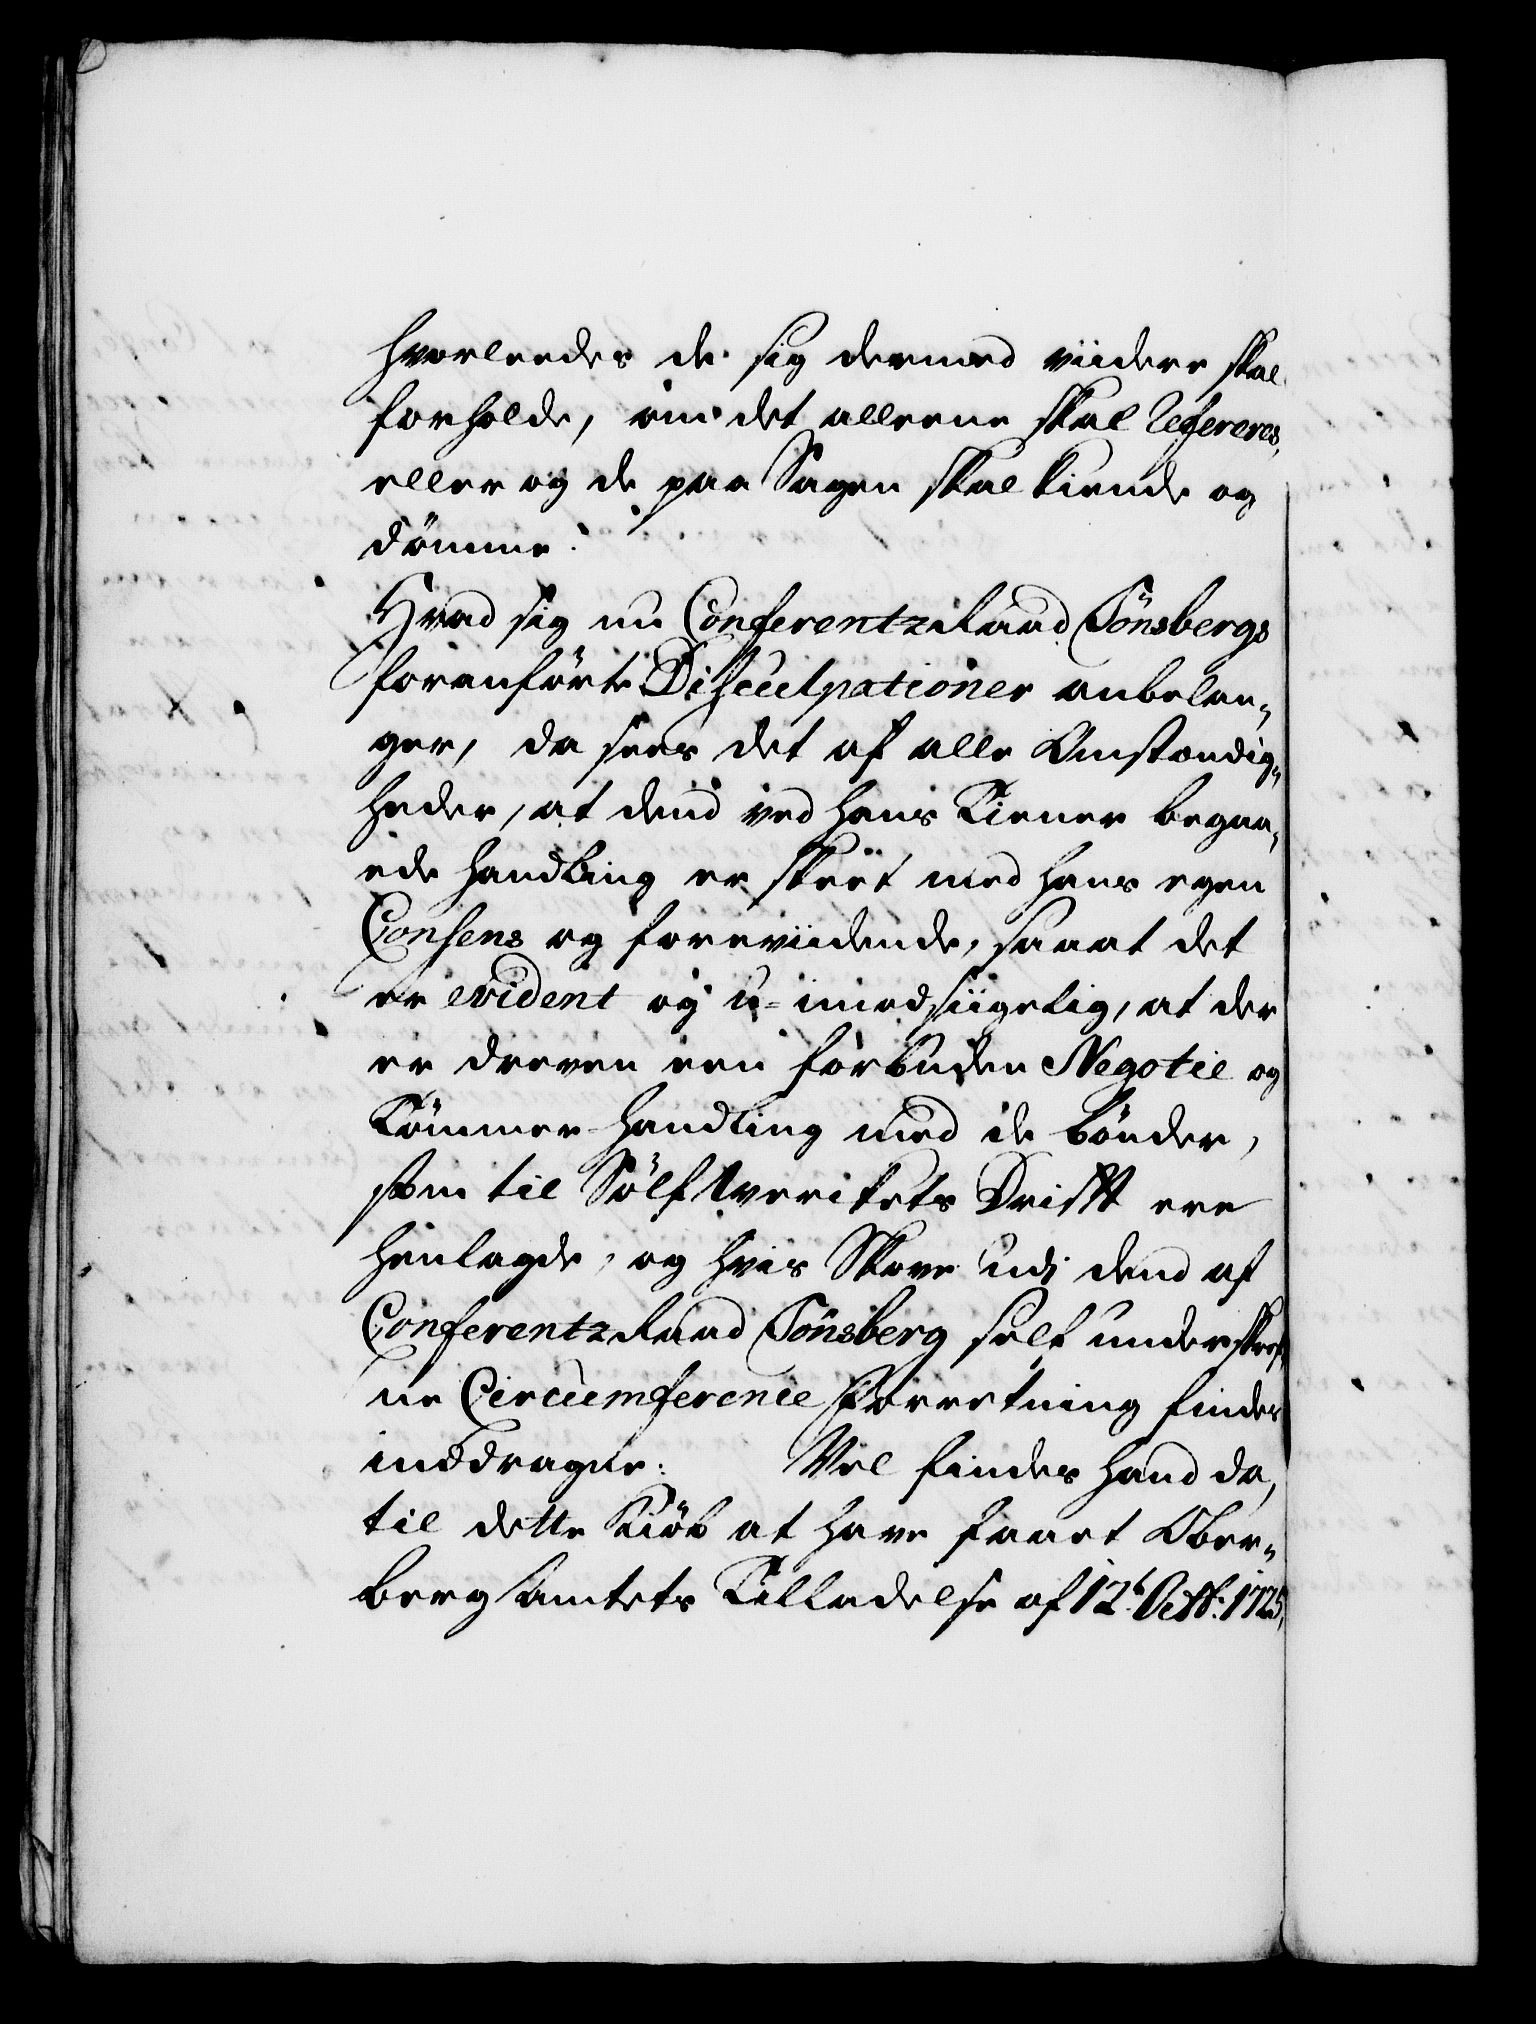 hvorleedes de sig dermed viidere skal
forholde, om det alleene skal Refereres,
eller og de paa Sagen skal kiende og
dömme?
Hvad sig nu Conferentz Raad Tönsbergs
foranförte Disculpationer anbelan„
ger, da sees det af alle Omstændig„
heder, at dend ved hans Tiener begaa„
ede handling er skeet med hans egen
Consens og foreviidende, saaat det
er evident og u-imodsiigelig, at der
er dreven een forbuden Negotie og
Tömmer-handling med de bönder,
som til Sölf Werckets Drifft ere
henlagde, og hvis Skove udj dend af
Conferentz Raad Tönsberg self underskref„
ne Circumference Forretning findes
inddragne. Vel findes hand da,
til dette Kiöb at have faaet Ober„
berg Amtets Tilladelse af 12t. Octb: 1725,